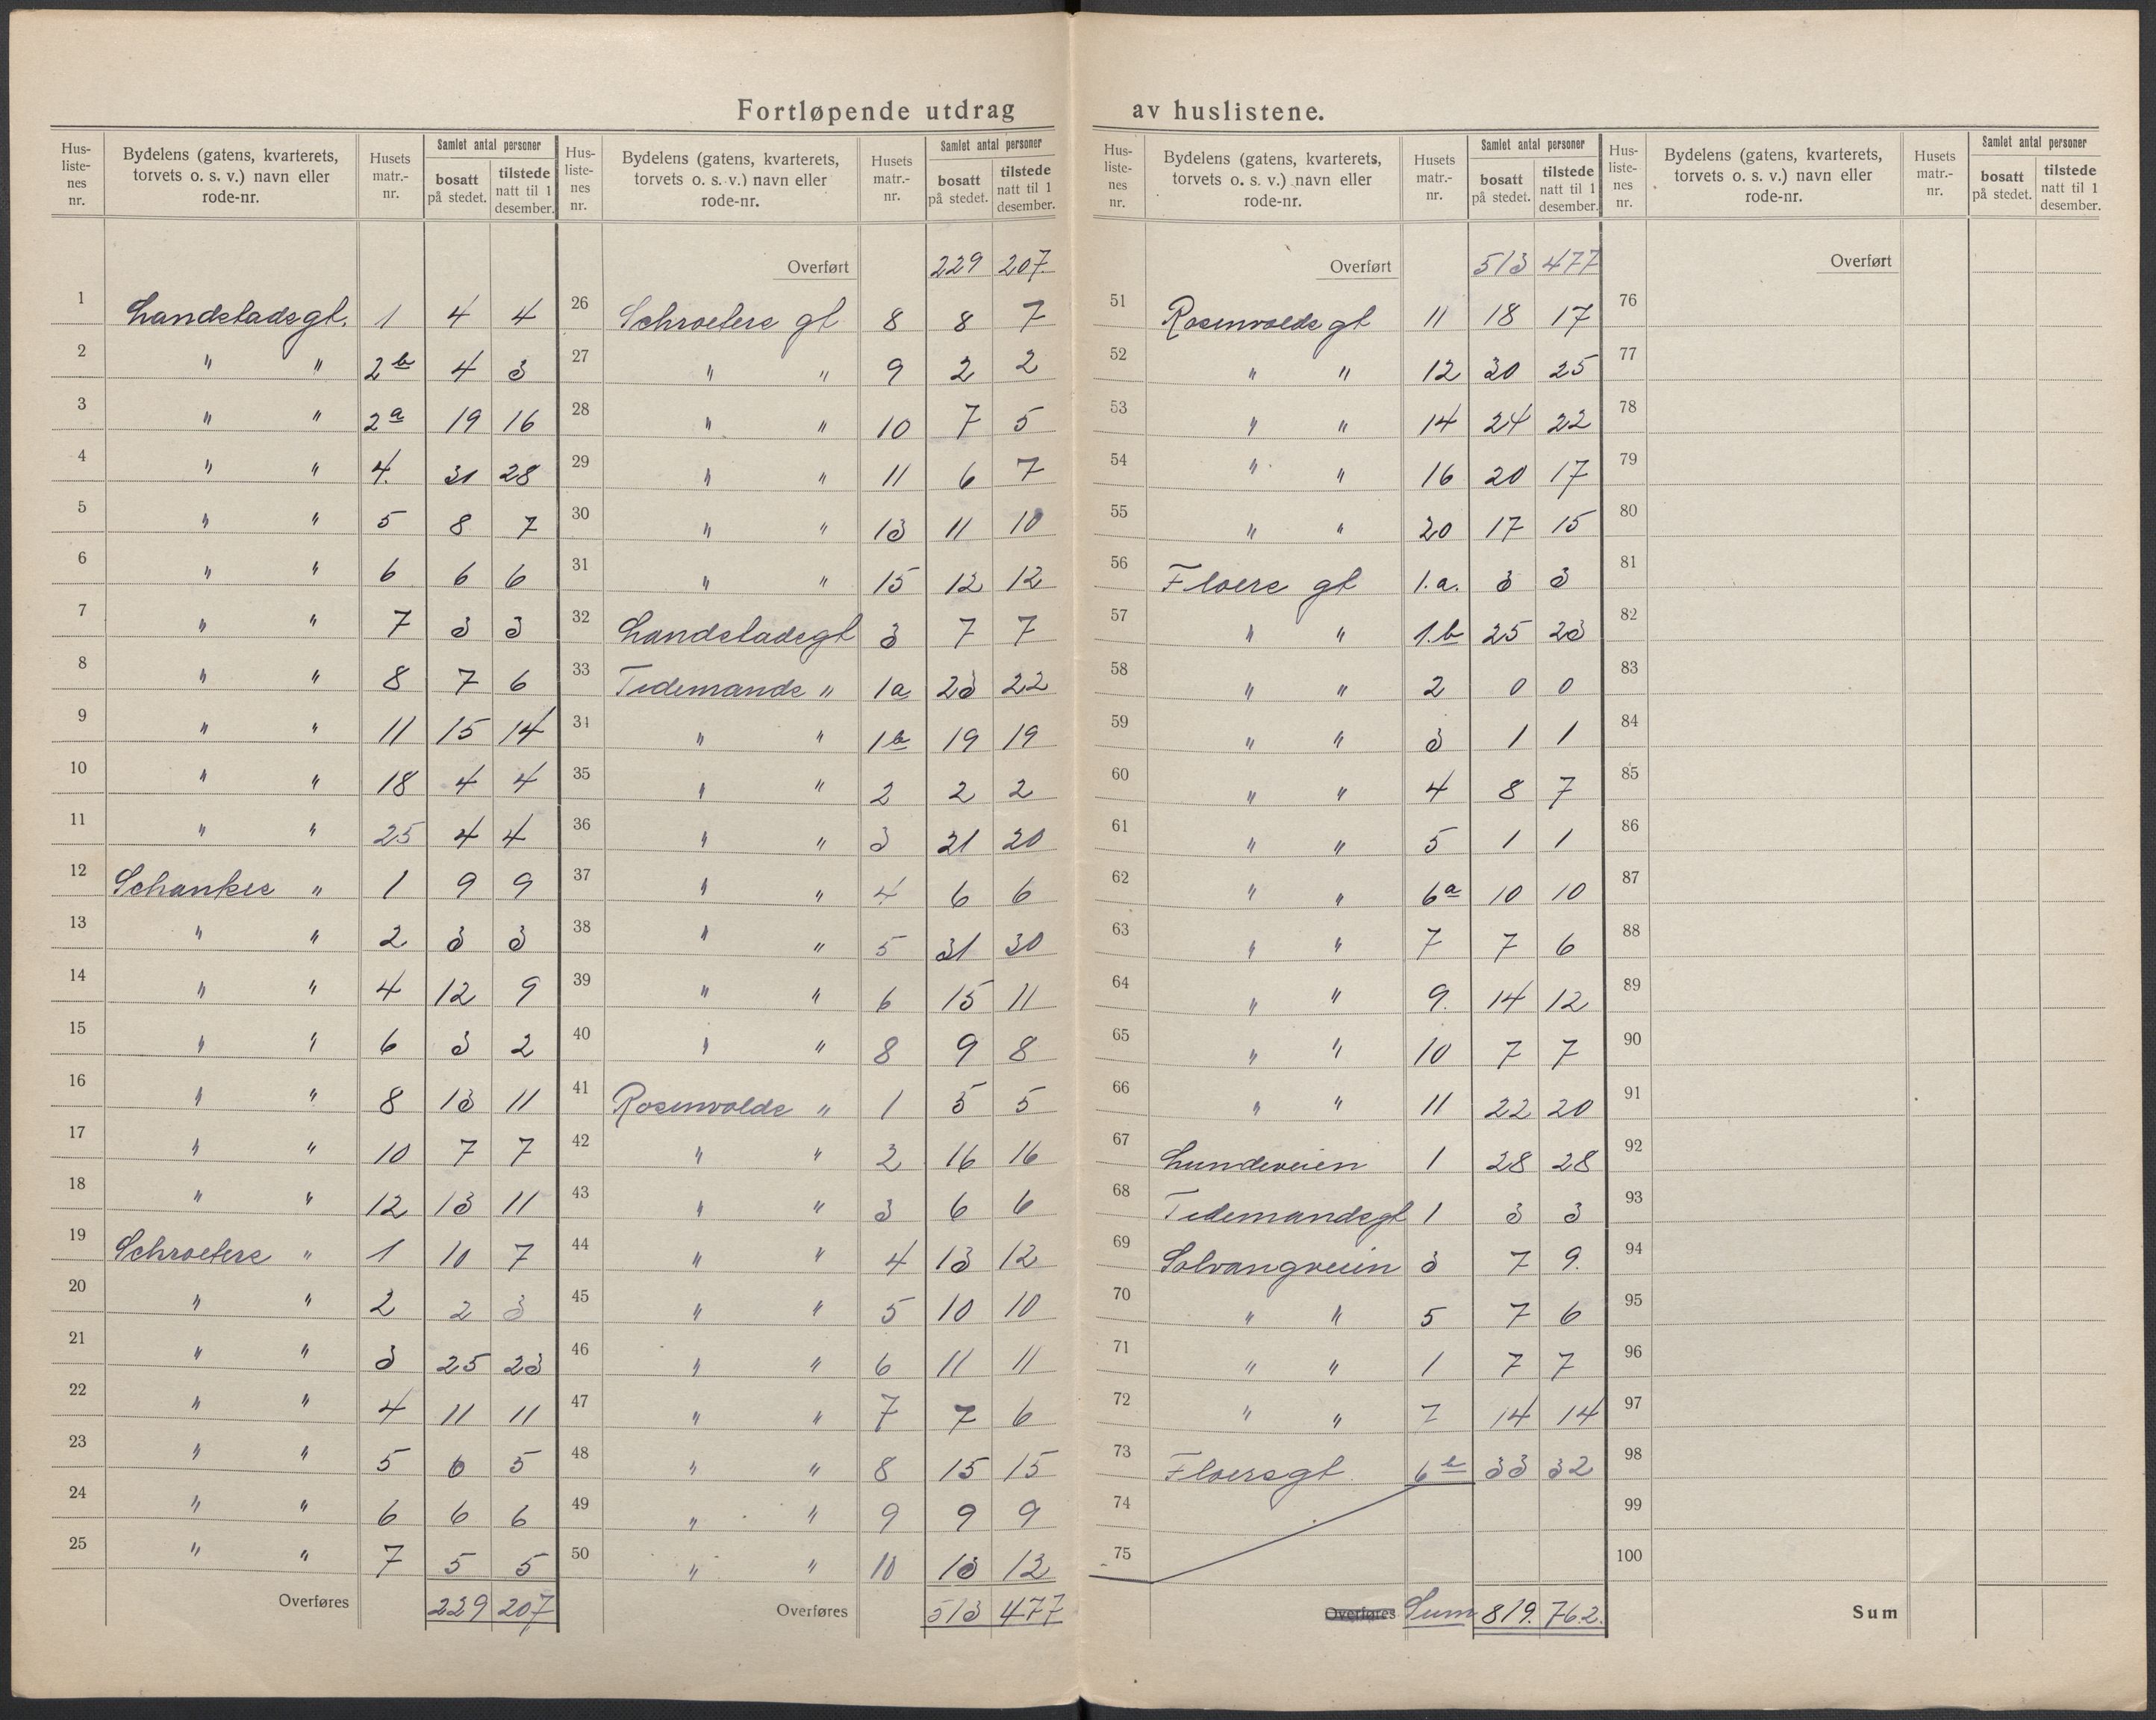 Fortløpende utdrag av huslistene.
Hus-listenes nr. | Bydelens (gatens, kvarterets, torvets o. s. v.) navn eller rode-nr. | Husets matr.-nr. | Samlet antal personer bosatt på stedet. | tilstede natt til 1 desember.
1 Landstadsgt. 1 4 4
2 " " 2b 4 3
3 " " 2a 19 16
4 " " 4. 31 28
5 " " 5 8 7
6 " " 6 6 6
7 " " 7 3 3
8 " " 8 7 6
9 " " 11 15 14
10 " " 18 4 4
11 " " 25 4 4
12 Schankes " 1 9 9
13 " " 2 3 3
14 " " 4 12 9
15 " " 6 3 2
16 " " 8 13 11
17 " " 10 7 7
18 " " 12 13 11
19 Schroeters " 1 10 7
20 " " 2 2 3
21 " " 3 25 23
22 " " 4 11 11
23 " " 5 6 5
24 " " 6 6 6
25 " " 7 5 5
Overføres 229 207
Hus-listenes nr. | Bydelens (gatens, kvarterets, torvets o. s. v.) navn eller rode-nr. | Husets matr.-nr. | Samlet antal personer bosatt på stedet. | tilstede natt til 1 desember.
Overført 229 207.
26 Schroeters gt 8 8 7
27 " " 9 2 2
28 " " 10 7 5
29 " " 11 6 7
30 " " 13 11 10
31 " " 15 12 12
32 Landstadsgt 3 7 7
33 Tidemands " 1a 23 22
34 " " 1b 19 19
35 " " 2 2 2
36 " " 3 21 20
37 " " 4 6 6
38 " " 5 31 30
39 " " 6 15 11
40 " " 8 9 8
41 Rosenvolds " 1 5 5
42 " " 2 16 16
43 " " 3 6 6
44 " " 4 13 12
45 " " 5 10 10
46 " " 6 11 11
47 " " 7 7 6
48 " " 8 15 15
49 " " 9 9 9
50 " " 10 13 12
Overføres 513 477
Hus-listenes nr. | Bydelens (gatens, kvarterets, torvets o. s. v.) navn eller rode-nr. | Husets matr.-nr. | Samlet antal personer bosatt på stedet. | tilstede natt til 1 desember.
Overført 513 477
51 Rosenvolds gt 11 18 17
52 " " 12 30 25
53 " " 14 24 22
54 " " 16 20 17
55 " " 20 17 15
56 Floers gt 1.a. 3 3
57 " " 1.b 25 23
58 " " 2 0 0
59 " " 3 1 1
60 " " 4 8 7
61 " " 5 1 1
62 " " 6a 10 10
63 " " 7 7 6
64 " " 9. 14 12
65 " " 10 7 7
66 " " 11 22 20
67 Lundeveien 1 28 28
68 Tidemandsgt 1 3 3
69 Solvangveien 3 7 9.
70 " " 5 7 6
71 " " 1 7 7
72 " " 7 14 14
73 Floersgt 6b 33 32
74
75
Overføres Sum 819. 762.
Hus-listenes nr. | Bydelens (gatens, kvarterets, torvets o. s. v.) navn eller rode-nr. | Husets matr.-nr. | Samlet antal personer bosatt på stedet. | tilstede natt til 1 desember.
Overført
76
77
78
79
80
81
82
83
84
85
86
87
88
89
90
91
92
93
94
95
96
97
98
99
100
Sum